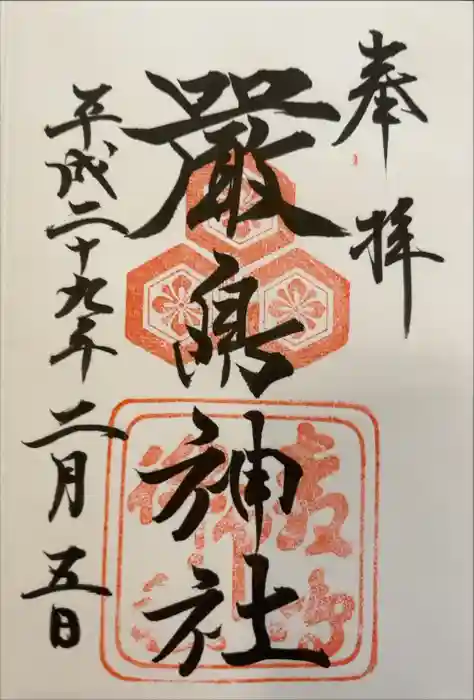 奉拝
嚴島神社
平成二十九年二月五日